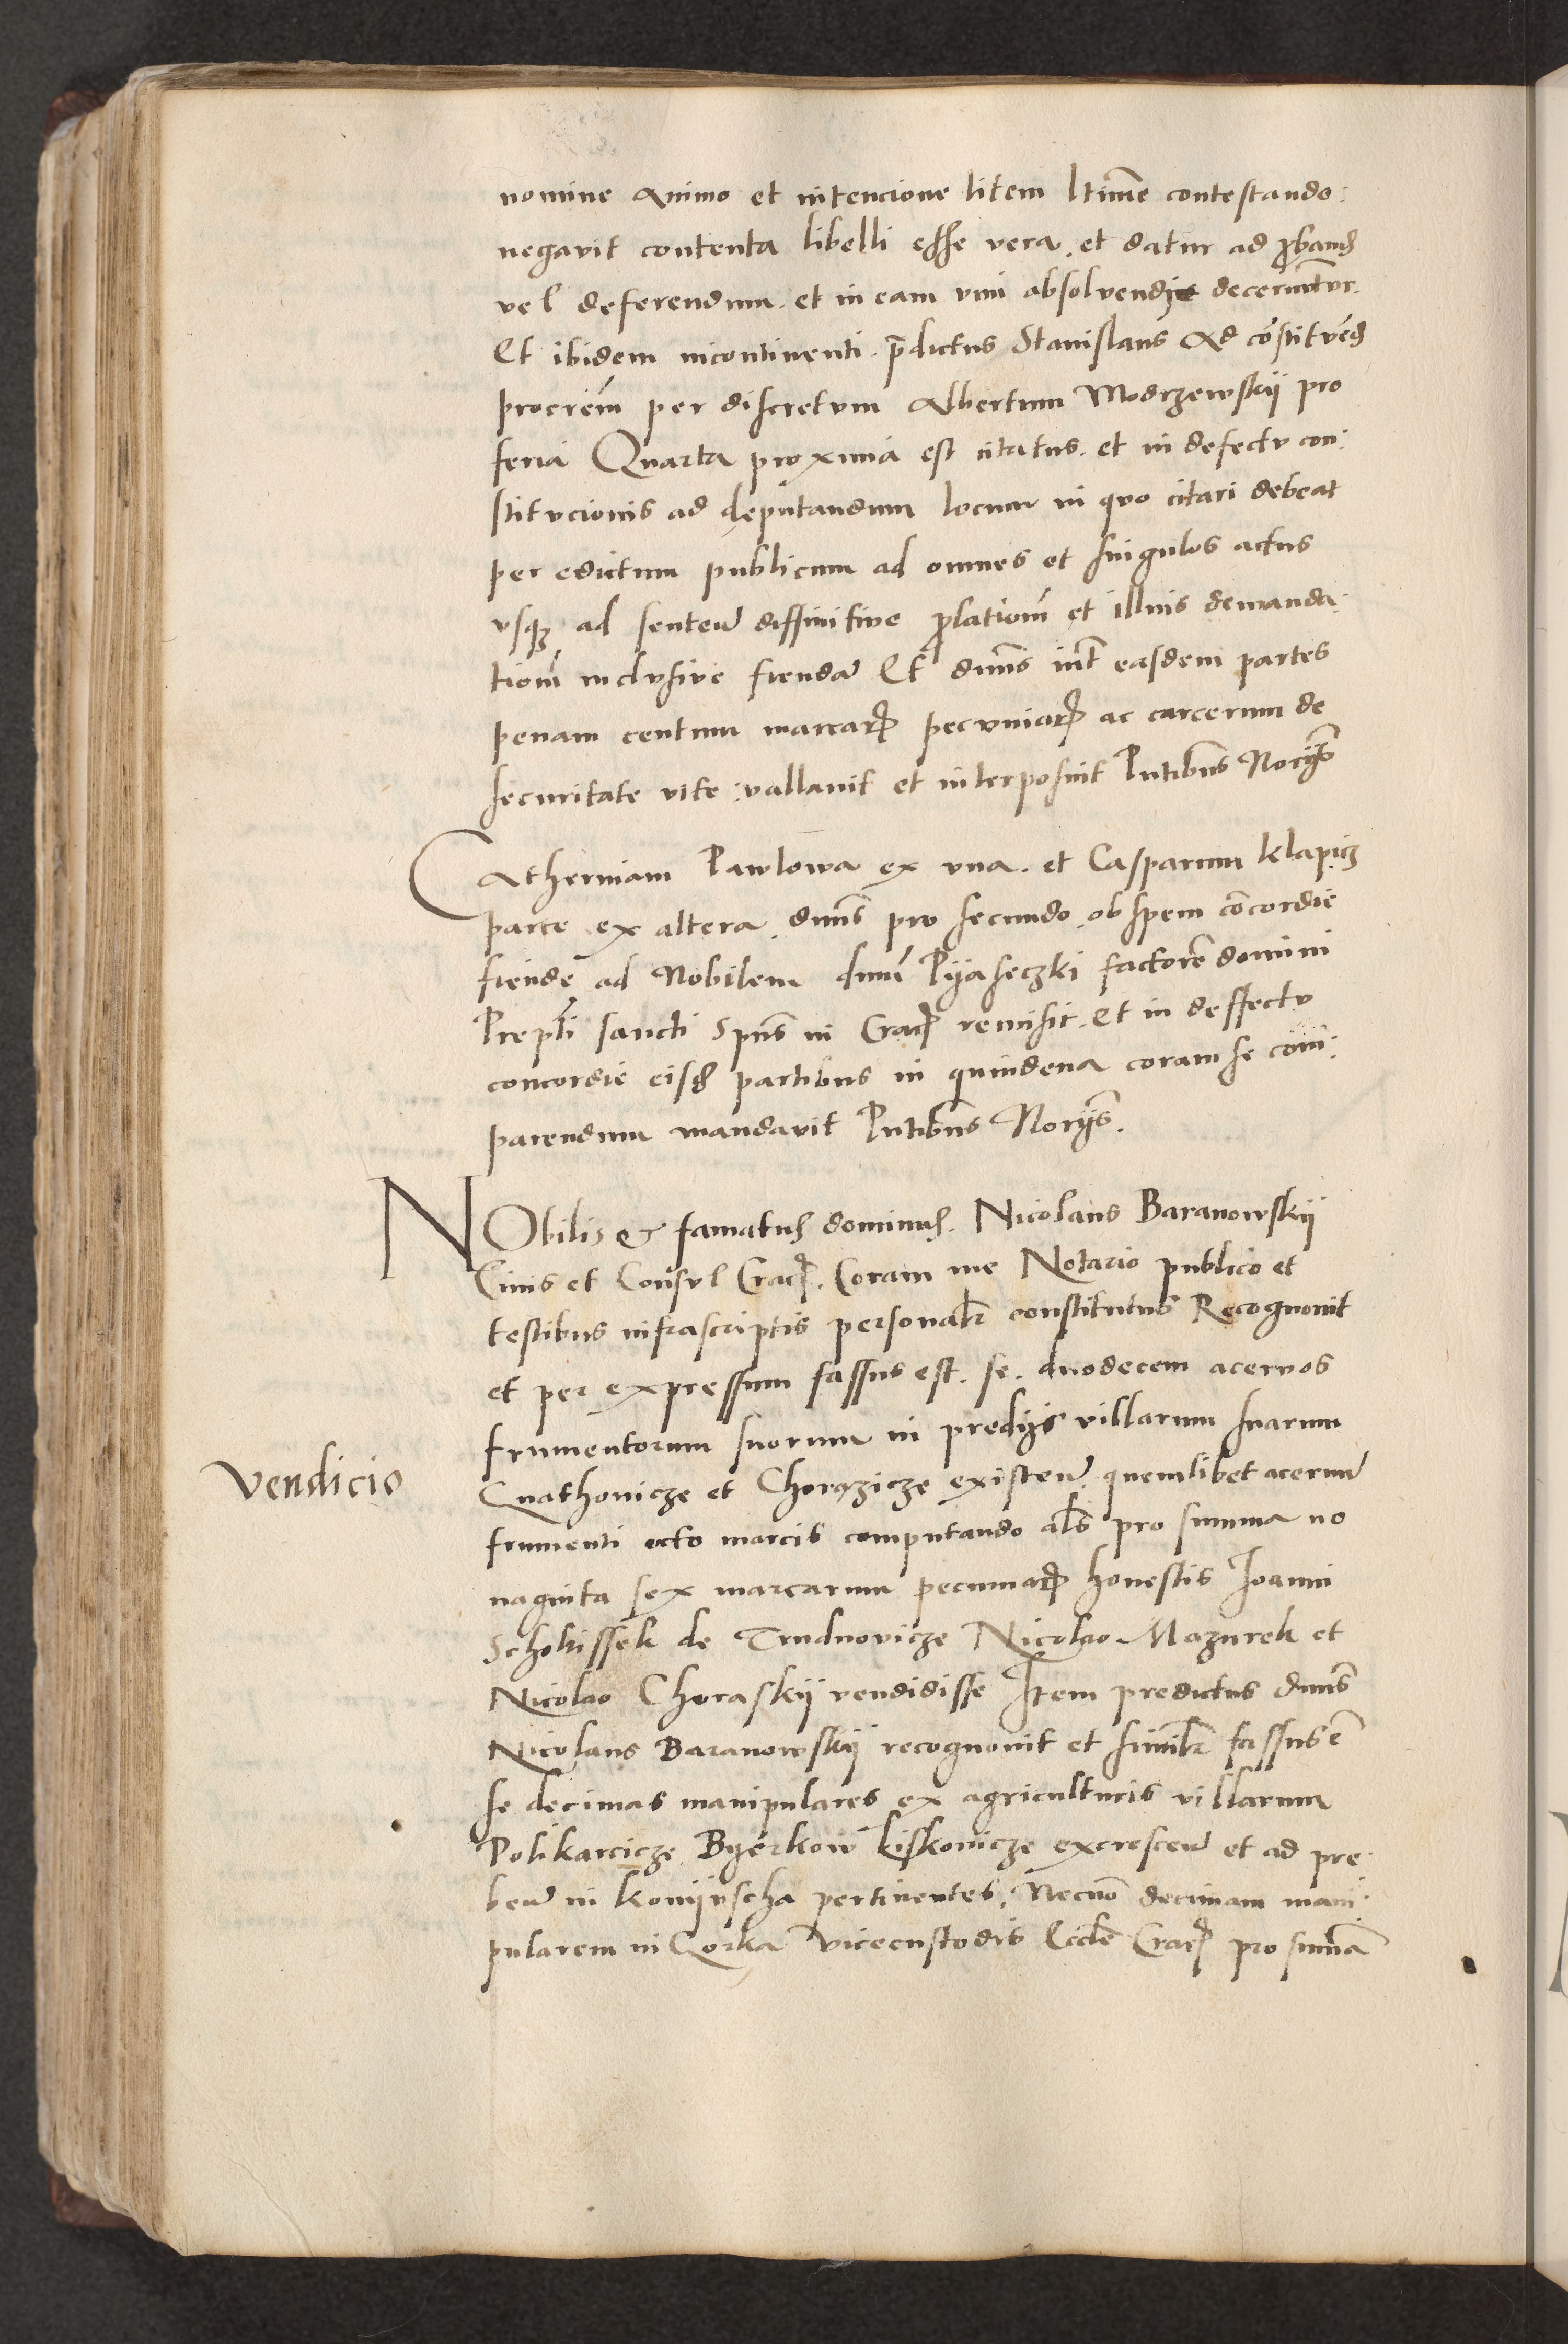 nomine animo et intencione litem ltime contestando:
negavit contenta libelli esse vera. et datur ad ꝓband
vel deferendum. et in eam vim absolvendi decernuntur.
Et ibidem incontinenti. p̄dictus Stanislaus ad cōstituēd
procrēm per discretum Albertum Modrzewskij pro
feria Quarta proxima est citatus. et in defectu con:
stitucionis ad deputandum locum in quo citari debeat
per edictum publicum ad omnes et singulos actus
vsqȝ ad senten diffinitive ꝓlationē et illius demanda:
tionē inclusive fienda Et dnus int easdem partes
penam centum marcarꝝ pecuniarꝝ ac carcerum de
securitate vite: vallavit et interposuit Pntibus Norijs
Catherinam Pawlowa ex vna. et Casparum Klapicz
parte ex altera. dnus pro secundo. ob spem cōcordie
fiende ad Nobilem dnm Pyaseczki factorē domini
Prepti sancti Spus in Crac remisit. Et in deffectu
concordie eisd partibus in quindena coram se com:
parendum mandavit Pntibus Norijs.
NObilis & famatus dominus. Nicolaus Baranowskij
Civis et Consul Crac. Coram me Notario publico et
testibus infrascriptis personaltr constitutus Recognovit
et per expressum fassus est. se. duodecem acervos
frumentorum suorum in predijs villarum suarum
vendicio
Gnathovicze et Chorązicze existen quemlibet acervum
frumenti octo marcis computando als pro summa no
naginta sex marcarum pecuniarꝝ honestis Joanni
Schokissek de Trudnovicze Nicolao Mazurek et
Nicolao Choraskij vendidisse Item predictus dnus
Nicolaus Baranowskij recognovit et similitr fassus ē
se decimas manipulares ex agriculturis villarum
Polikarcicze Byerkow Liskovicze excrescen et ad pre:
ben in Konijuscha pertinentes. Necnō decimam mani:
pularem in Gorka vicecustodis Eccle Crac pro summa